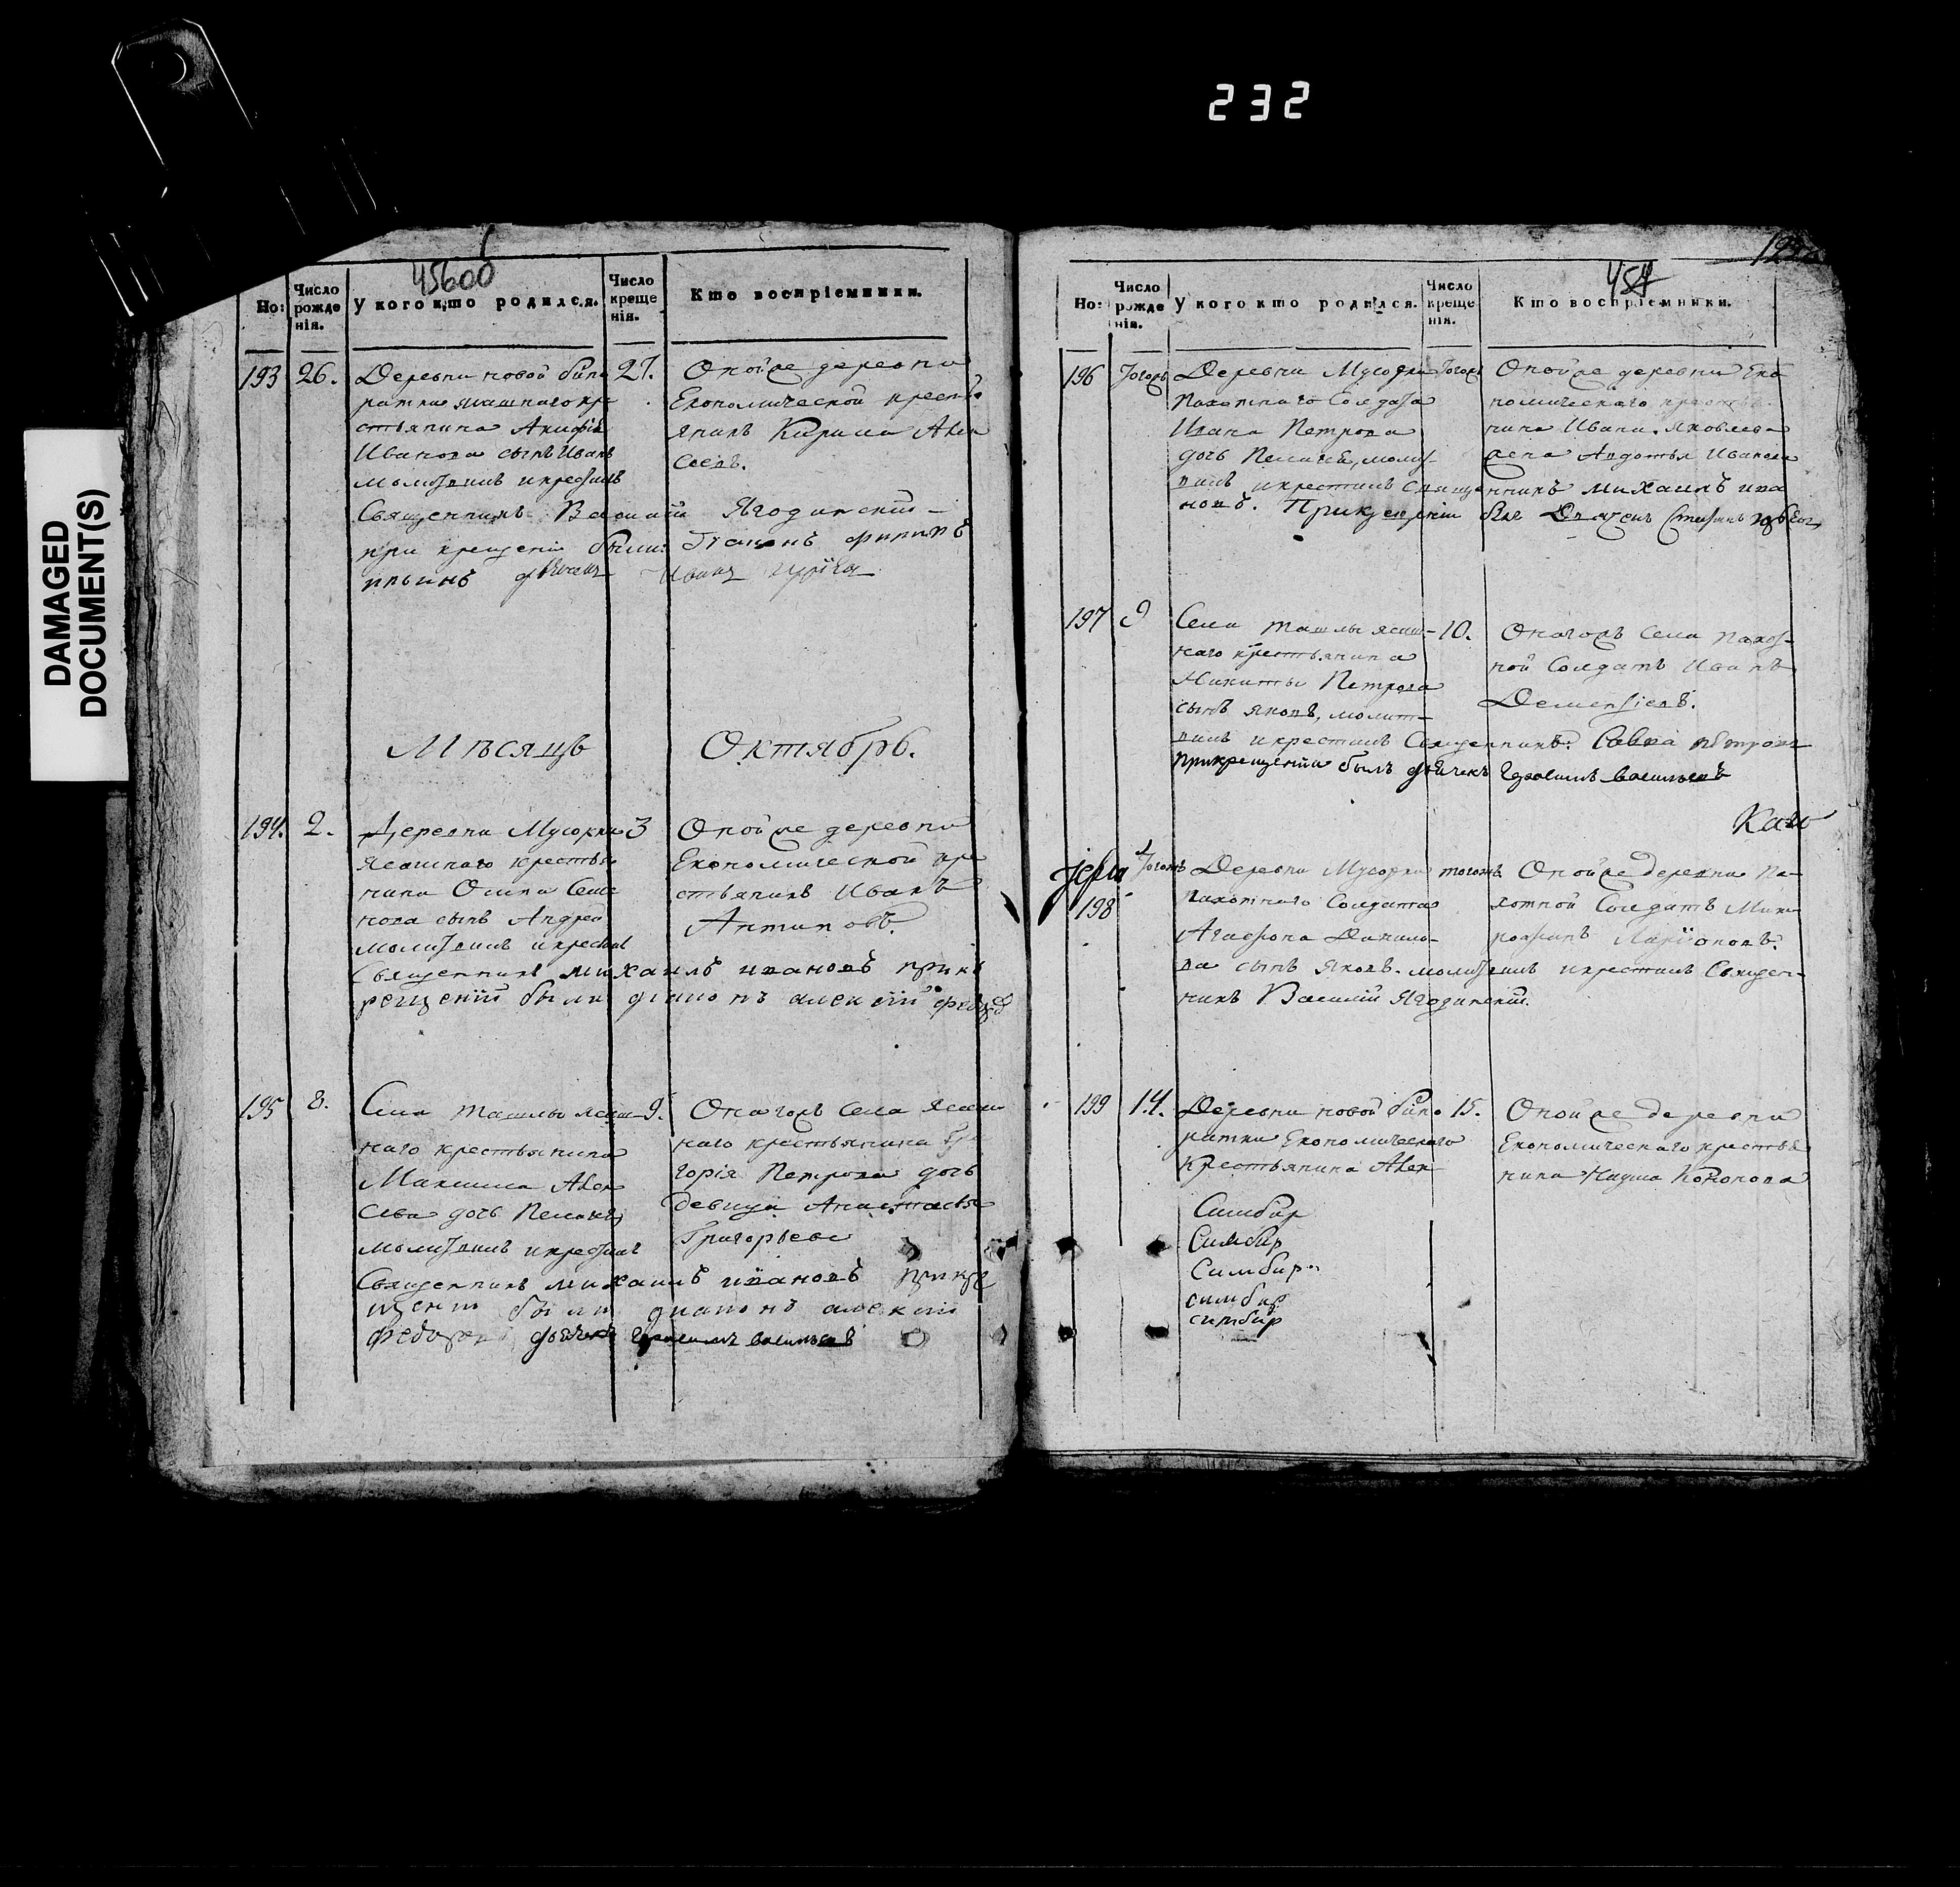 232
DAMAGED
DOCUMENT(S)
45600
Но:
Число рожде нія.
У кого кто родился.
Число креще нія.
Кто воспріемники.
193
26.
Деревни новой бина
ратки ясашнаго кре
стьянина
Иванова сынъ Иванъ
молитвилъ и крестилъ
Священникъ Василий Ягодинский
при крещении были: диаконъ филипъ
ильинъ дьячекъ Иванъ
27.
Оной же деревни
Економической крестья
янинъ Кирила Алек
сеевъ.
Мѣсяцъ Октябрь.
194.
2.
Деревни Мусорки
ясашнаго крестья
нина Осипа Семе
нова сынъ Андрей
молитвилъ и крестил
Священникъ михаилъ ивановъ при кь
рещений были диаконъ алексий федор
3
Оной же деревни
Економической кре
стьянинъ Иванъ
Антиповъ.
195
8.
Села ташлы ясаш-
наго крестьянина
Максима Алек
сева дочь Пелагея
молитвилъ и крестилъ
Священникъ михаилъ ивановъ при кре
щении были диаконъ алексий
федоров дьячекъ Герасимъ васильевъ
9.
Онагожъ села ясаш
наго крестьянина Гри
горія Петрова дочь
девица Анастасья
Григорьева
454
Но:
Число рожде нія.
У кого кто родился.
Число креще нія.
Кто воспріемники.
196
Тогожъ
Деревни Мусорки
пахотнаго Солдата
Ивана Петрова
дочь Пелагея, молит-
вилъ и крестилъ Священникъ михаилъ ива
новъ. При крещении был Дьячекъ Стефанъ
Тогожъ
Оной же деревни Еко
номическаго крестья-
нина Ивана Яковлева
жена Авдотья Иванова
197
9
Села ташлы ясаш-
наго крестьянина
Никиты Петрова
сынъ яковъ, молит-
вилъ и крестилъ Священникъ: Савва петровъ
при крещении былъ дьячекъ Герасимъ васильевъ
10.
Онагожъ села пахот-
ной Солдатъ Иванъ
Дементіевъ.
198
Тогожъ
Деревни Мусорки
пахотнаго Солдата
Агафона Данило-
ва сынъ яковъ. молитвилъ и крестилъ Священ-
никъ Василий Ягодинский.
тогожъ
Оной же деревни Па-
хотной Солдатъ Мит-
рофанъ Ларіоновъ.
199
14.
Деревни новой бина
ратки Економическаго
Крестьянина Алек-
15.
Оной же деревни
Економическаго крестья
нина Наума Кононова
Симбир
Симбир
Симбир
симбир
симбир